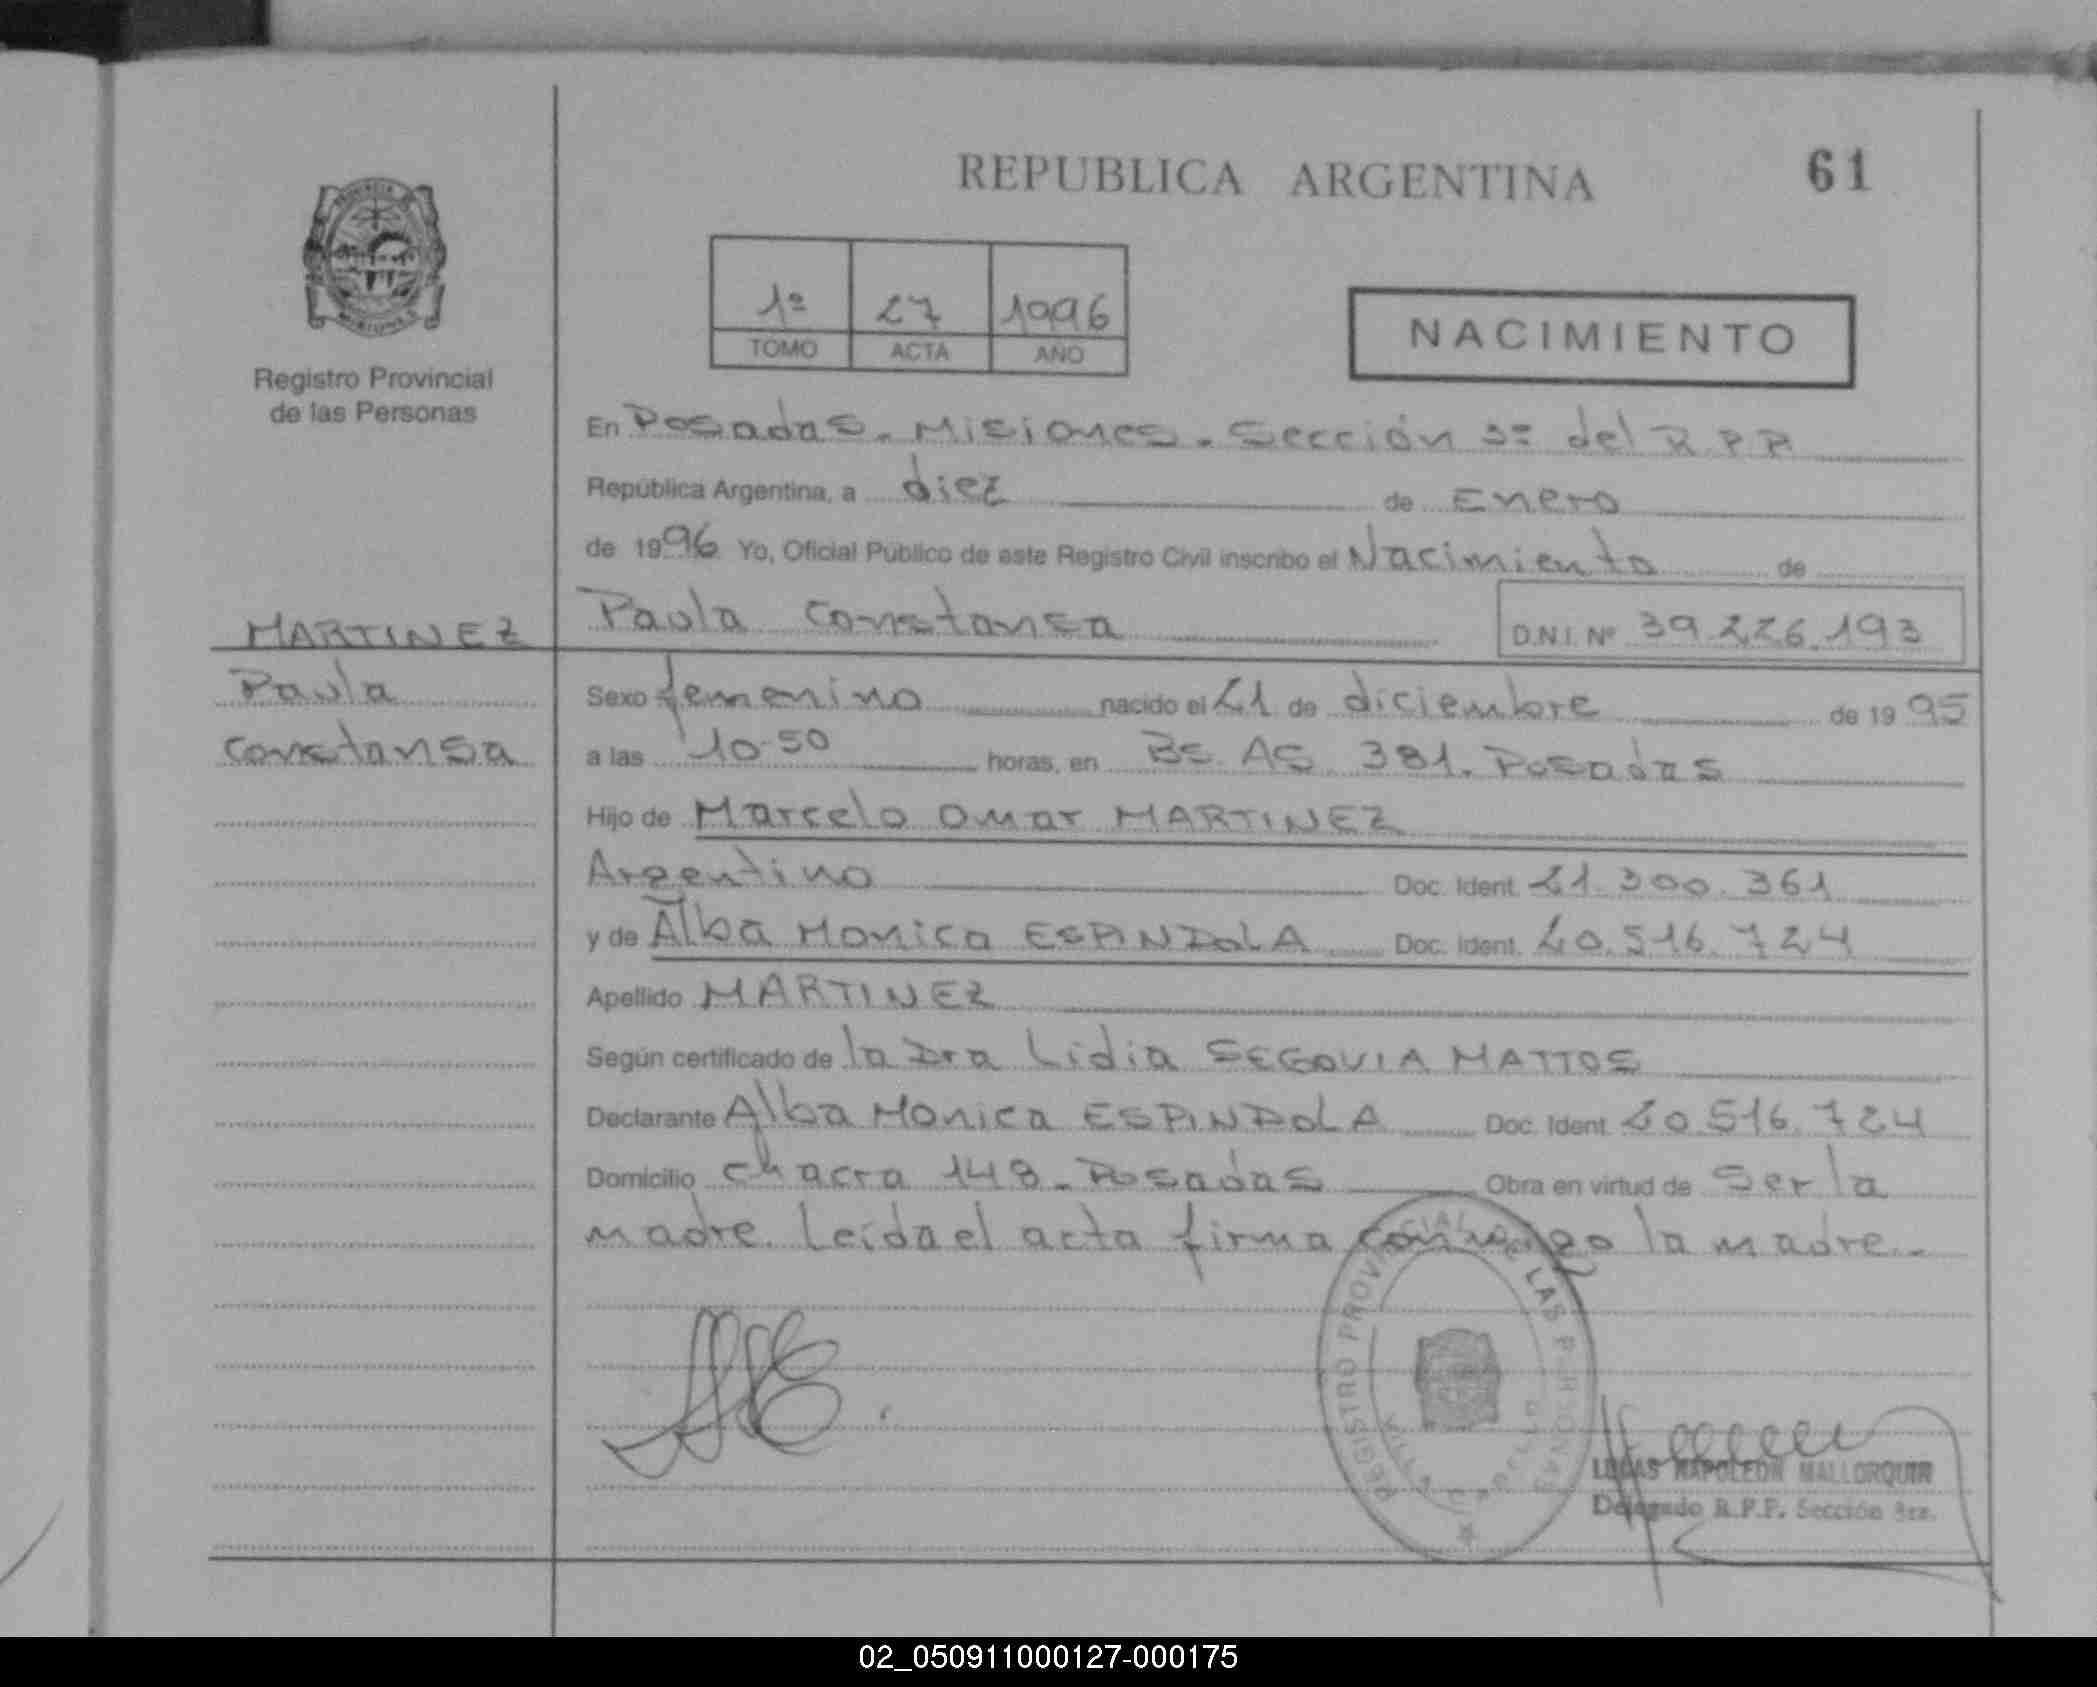 REPUBLICA ARGENTINA 61
Registro Provincial
de las Personas
1º 27 1996
TOMO ACTA AÑO
NACIMIENTO
En Posadas. Misiones. Sección 3º del R.P.P
República Argentina, a diez de Enero
de 1996 Yo, Oficial Público de este Registro Civil inscribo el Nacimiento de
Paula Constansa D.N.I. Nº 39.226.193
MARTINEZ
Paula
Constansa
Sexo femenino nacido el 21 de diciembre de 1995
a las 10-50 horas, en Bs. As 381. Posadas
Hijo de Marcelo Omar MARTINEZ
Argentino Doc. Ident. 21.300.361
y de Alba Monica ESPINDOLA Doc. Ident. 20.516.724
Apellido MARTINEZ
Según certificado de la Dra Lidia SEGOVIA MATTOS
Declarante Alba Monica ESPINDOLA Doc. Ident. 20.516.724
Domicilio chacra 148. Posadas Obra en virtud de Ser la
madre. Leída el acta firma conmigo la madre.-
REGISTRO PROVINCIAL DE LAS PERSONAS
VILLA CABELLO
LUCAS NAPOLEON MALLORQUIN
Delegado R.P.P. Sección 3ra.
02_050911000127-000175